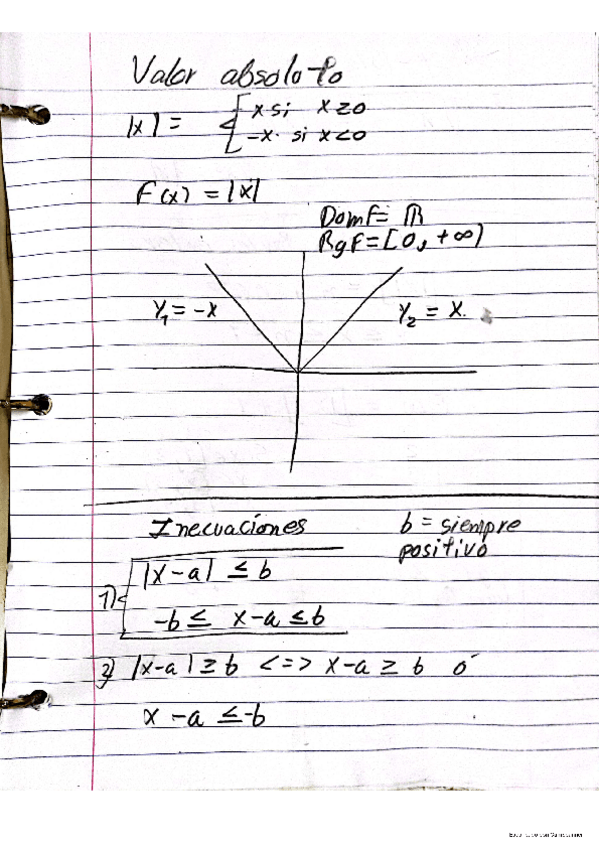 Valor absoluto
|x| = { x si x ≥ 0
-x. si x < 0
F(x) = |x|
Domf = ℝ
Rgf = [0, +∞)
Y₁ = -x
Y₂ = x.
Inecuaciones
b = siempre
positivo
1) |x-a| ≤ b
-b ≤ x-a ≤ b
2) |x-a| ≥ b <=> x-a ≥ b ó
x -a ≤ -b